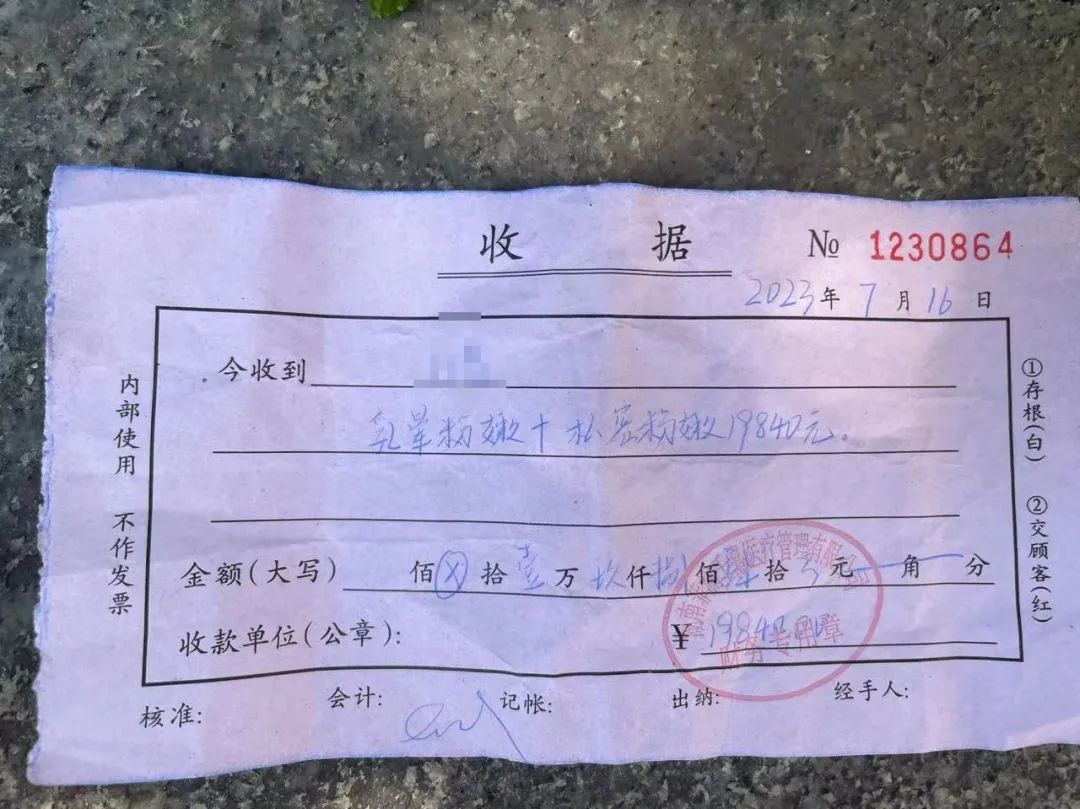 收据 № 1230864
2023年7月16日
今收到
乳晕粉嫩+私密粉嫩19840元。
金额(大写) 佰ⓧ拾壹万玖仟捌佰肆拾 元 角 分
收款单位(公章): ¥ 19840.00
医疗管理有限
财务专用章
核准: 会计: 记帐: 出纳: 经手人:
内部使用 不作发票
①存根(白)
②交顾客(红)